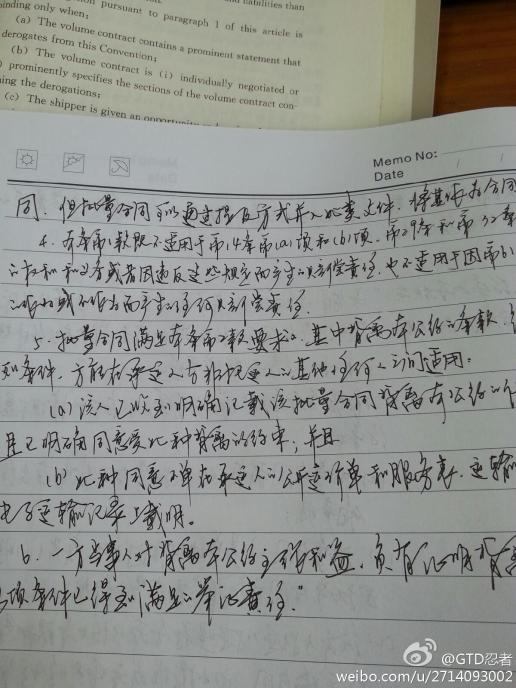 pursuant to paragraph 1 of this article is
inding only when:
(a) The volume contract contains a prominent statement that
derogates from this Convention;
(b) The volume contract is (i) individually negotiated or
) prominently specifies the sections of the volume contract con-
ing the derogations;
(c) The shipper is given an opportunity
Memo No:
Date / /
同。但批量合同可以通过提及方式并入此类文件,将其作为合同
4. 本条第1款既不适用于第14条第(a)项和(b)项、第29条和第32条
的权利和义务或者因违反这些规定而产生的赔偿责任,也不适用于因第61
的作为或不作为而产生的任何赔偿责任。
5. 批量合同满足本条第2款要求的,其中背离本公约的条款,
列条件,方能在承运人与非托运人的其他任何人之间适用:
(a) 该人已收到明确记载该批量合同背离本公约的
且已明确同意受此种背离的约束;并且
(b) 此种同意不单在承运人的公开运价单和服务表、运输
电子运输记录上载明。
6. 一方当事人对背离本公约主张利益,负有证明背离
项条件已得到满足的举证责任。”
@GTD忍者
weibo.com/u/2714093002